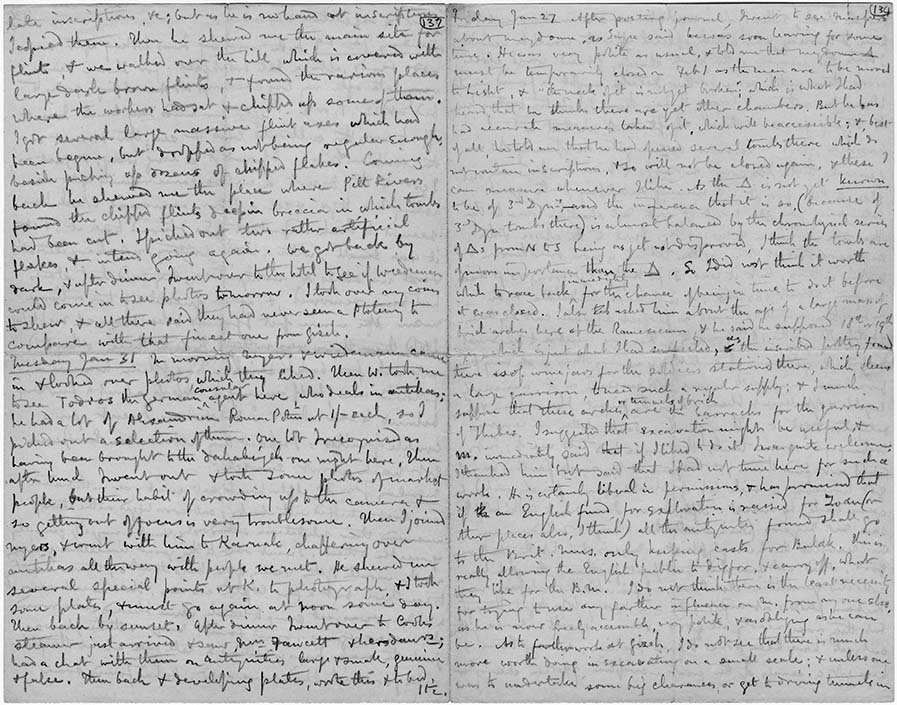 late inscriptions &c; but as he is no hand at inscriptions
137
I copied them. Then he shewed me the main site for
flints, & we walked over the hill which is covered with
large dark brown flints, & found the various places
where the workers had sat & chipped up some of them.
I got several large massive flint axes which had
been begun, but dropped as not being regular enough,
beside picking up dozens of chipped flakes. Coming
back he shewed me the place where Pitt Rivers
found the chipped flints deep in breccia in which tombs
had been cut. I picked out two rather artificial
flakes, & intend going again. We got back by
dark, & after dinner I went over to the hotel to see if Wiedemann
would come in to see photos tomorrow. I took over my coins
to shew, & all there said they had never seen a Ptolemy to
compare with that finest one from Gizeh.
Jan 31 In morning Myers & Wiedemann came
in & looked over photos which they liked. Then W. took me
to see Todros the German consular agent here who deals in antikas;
he had a lot of Alexandrian Roman at 1/- each, so I
picked out a selection of them. One lot I recognised as
having been brought to the dahabiyeh one night here. Then
after lunch I went out & took some photos of market
people, but their habit of crowding up to the camera &
so getting out of focus is very troublesome. Then I joined
Myers, & went with him to Karnak, chaffering over
antikas all the way with people we met. He shewed me
several special points at K. to photograph, & I took
some plates, & must go again at noon some day.
Then back by sunset. After dinner I went over to Cooks
steamer just arrived & saw Mrs Fawcett & her daur;
had a chat with them on antiquities large & small, genuine
& false. Then back & developing plates, wrote this & to bed,
134
day Jan 27 After posting journal, I went to see Maspero
about Meydoum, as Insinger said he was soon leaving for some
time. He was very polite as usual, & told me that my
must be temporarily closed on as the men are to be moved
to Lisht, & the neck of it is not yet broken; which is what I had
heard that he thinks there are yet other chambers. But he has
had accurate measures taken of it, which will be accessible; & best
of all, he told me that he had passed several tombs there which do
not contain inscriptions, & so will not be closed again, & these I
can measure whenever I like. As the Δ is not yet known
to be of 3rd Dyn, and the inference that it is so, (because of
3rd Dyn tombs there) is almost balanced by the chronological series
of Δs from N to S being as yet not disproved, I think the tombs are
of more importance than the Δ. So I did not think it worth
while to race back for the chance of being in time to do it before
it was closed. I also asked him about the age of a large mass of
brick arches here at the Ramesseum, & he said he supposed 18th or 19th
Dyn which is just what I had suspected, as the inscribed pottery found
there is of wine jars for the soldiers stationed there, which shews
a large garrison, to need such a regular supply; & I much
suppose that these arches, or tunnels of brick are the barracks for the garrison
of Thebes. I suggested that excavation might be useful &
M. immediately said that if I liked to do it I was quite welcome.
I thanked him but said that I had not time here for such a
work. He is certainly liberal in permissions, & has promised that
if an English fund for exploration is raised for Zoan (or
other places also, I think) all the antiquities found shall go
to the Brit. Mus. only keeping casts for Bulak. This is
really allowing the English public to dig for, & carry off, what
they like for the B.M. I do not think there is the least necessity
for trying to use any farther influence on M. from any one else,
as he is now freely accessible, very polite, & as obliging as he can
be. As to further work at Gizeh, I do not see that there is much
more worth doing in excavating on a small scale; & unless one
was to undertake some big clearances, or get to driving tunnels in